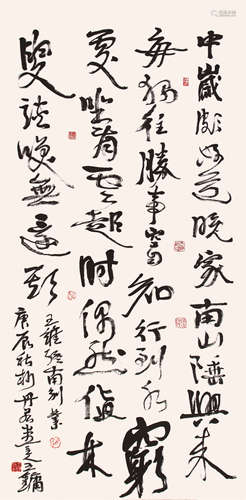 中歲頗好道晚家南山陲興來
每獨往勝事空自知行到水窮
處坐看雲起時偶然值林
叟談笑無還期
王維終南別業
庚辰秋 王鏞